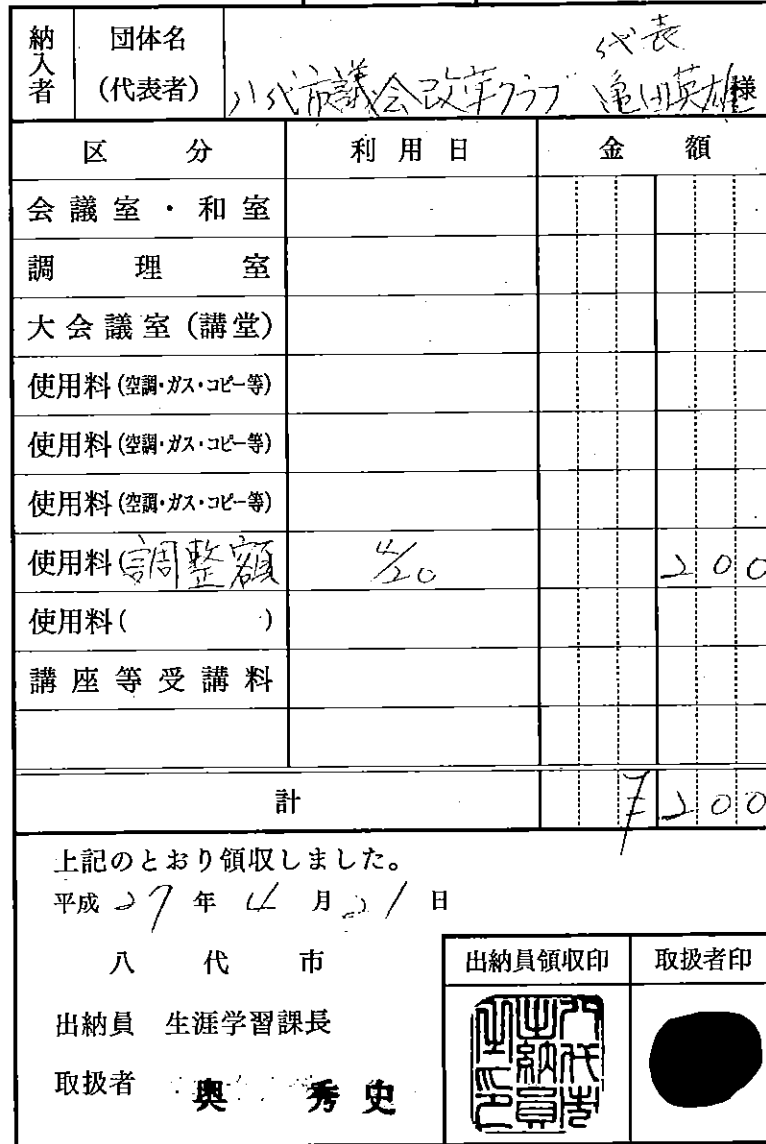 納入者 団体名(代表者) 八代市議会改革クラブ 代表 亀田英雄様
区分 利用日 金額
会議室・和室
調理室
大会議室(講堂)
使用料(空調・ガス・コピー等)
使用料(空調・ガス・コピー等)
使用料(空調・ガス・コピー等)
使用料(調整額 4/20 200
使用料( )
講座等受講料
計 ¥200
上記のとおり領収しました。
平成27年4月21日
八代市
出納員領収印 取扱者印
出納員 生涯学習課長
取扱者 奥 秀史
八代市出納員之印